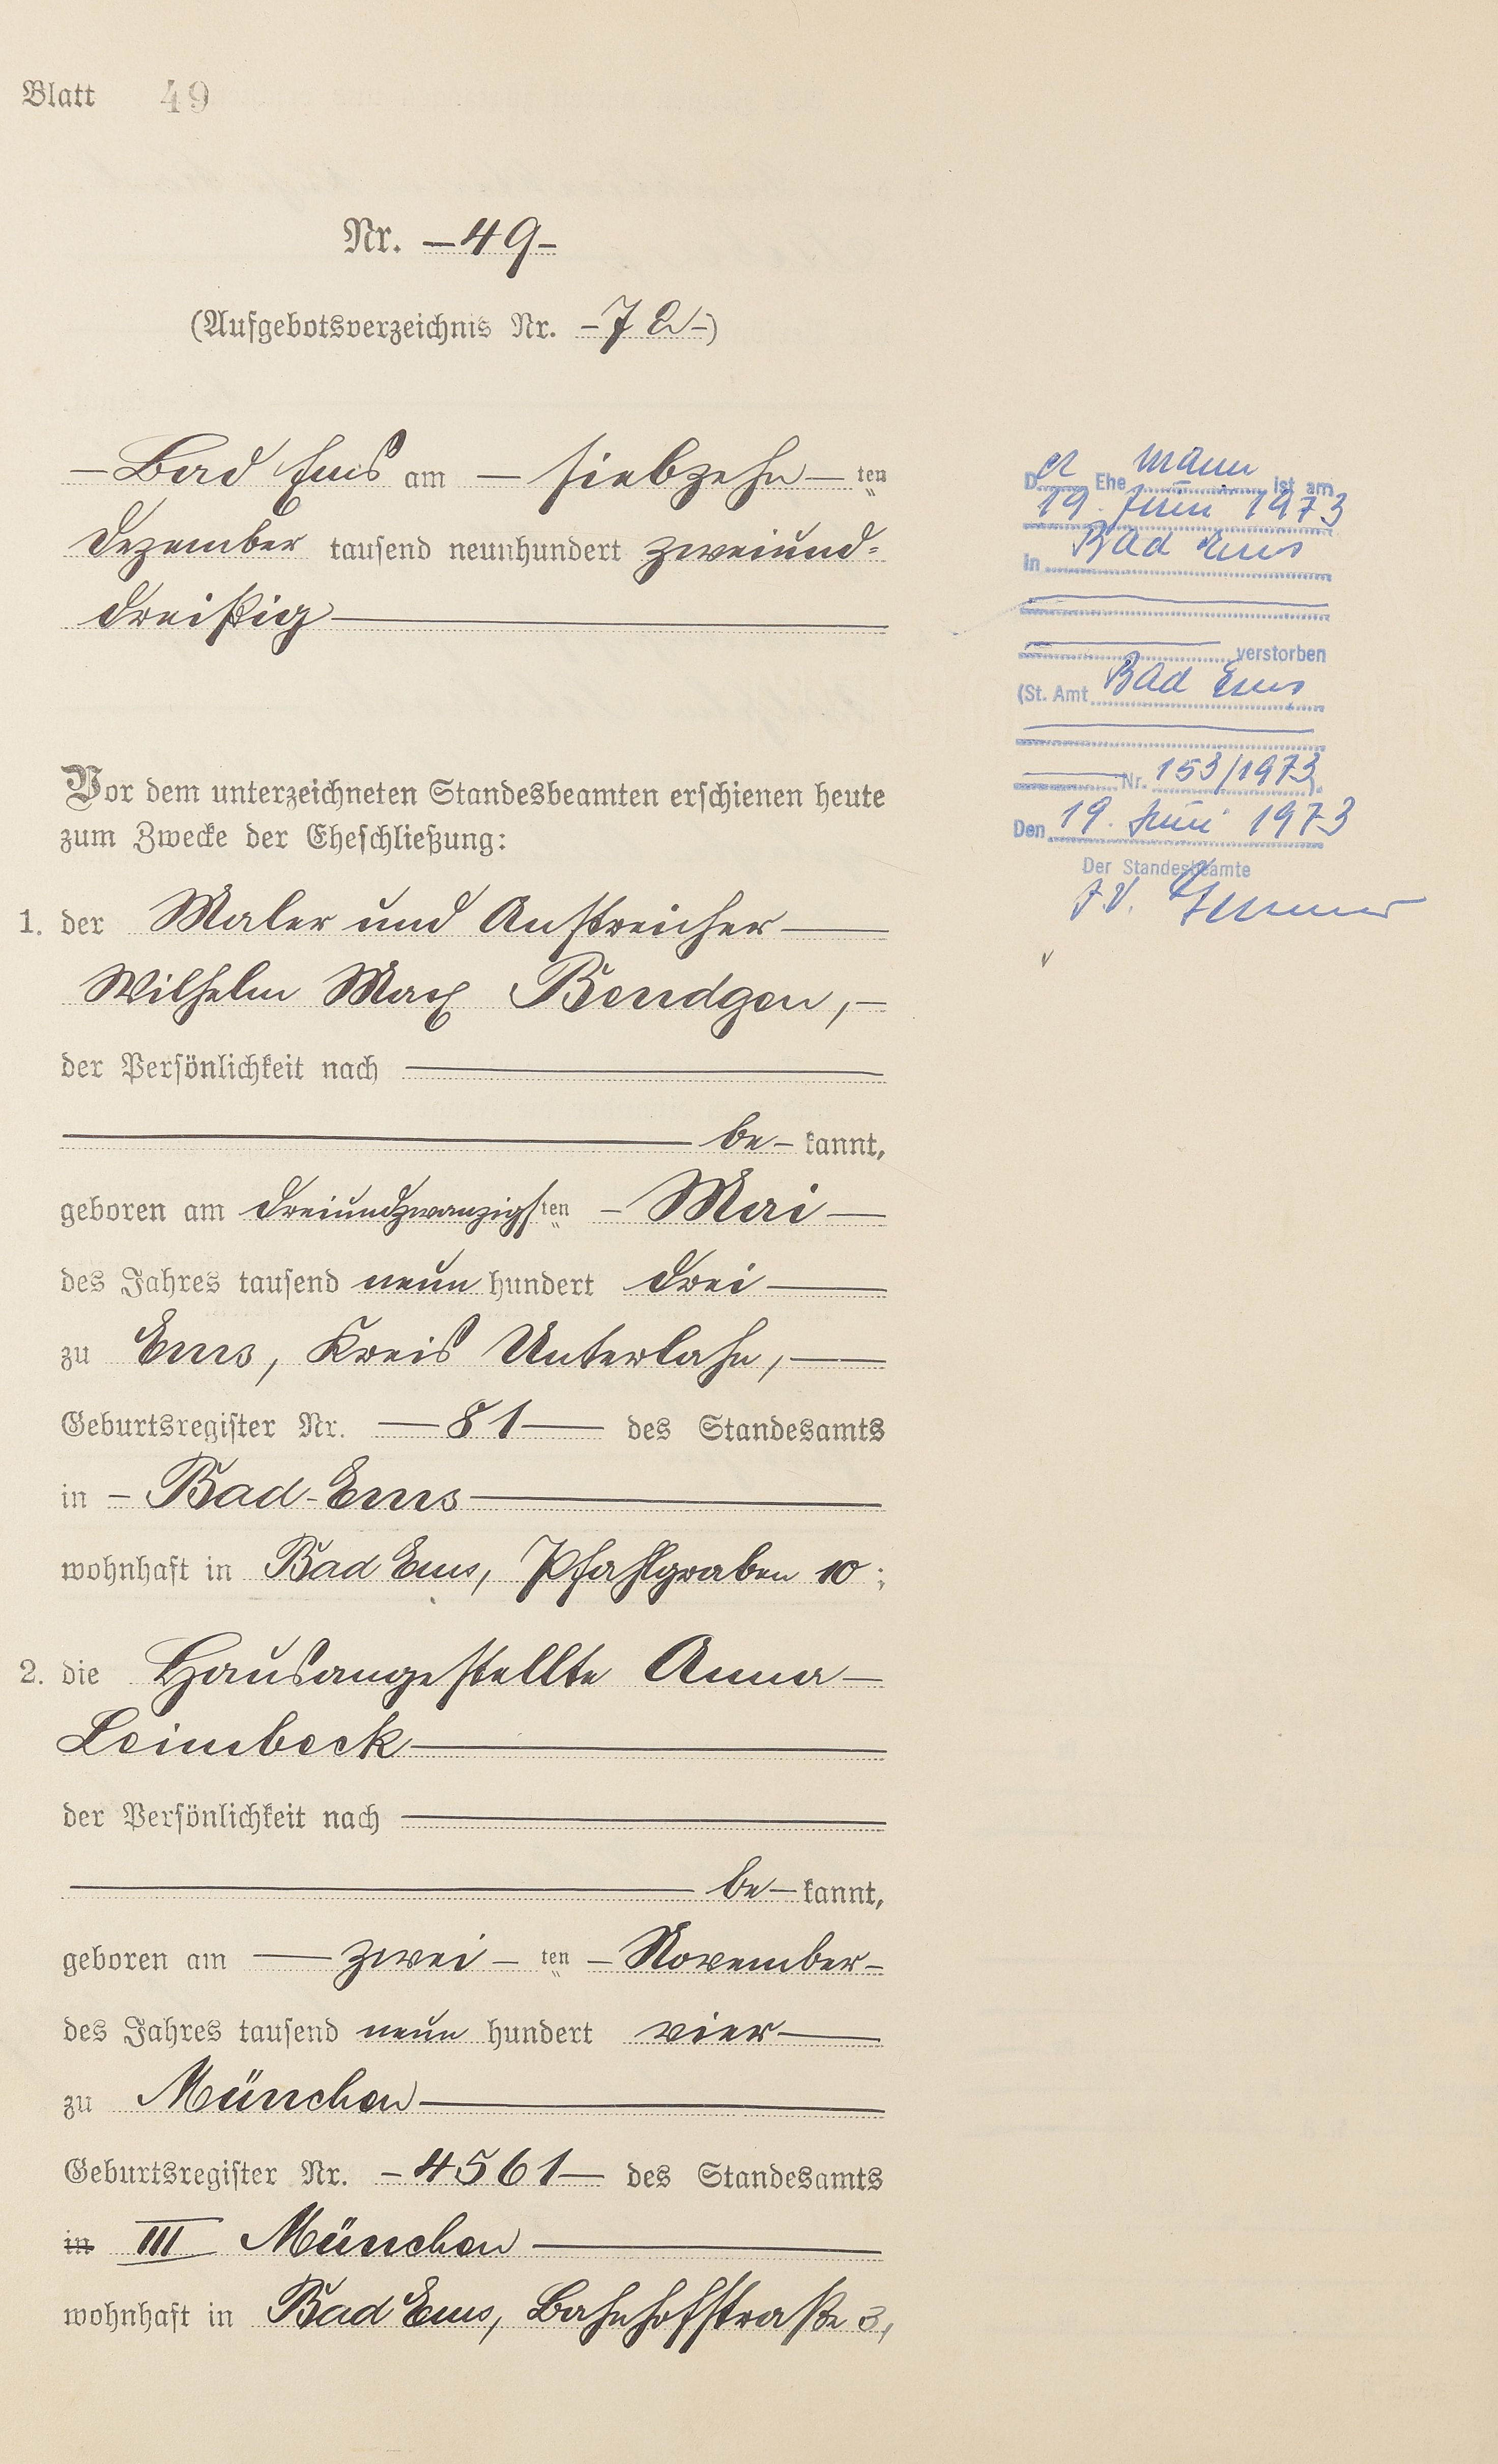 Blatt 49
Nr. —49—
(Aufgebotsverzeichnis Nr. —72—)
—Bad Ems am — siebzehn — ten
Dezember tausend neunhundert zweiund=
dreißig
Vor dem unterzeichneten Standesbeamten erschienen heute
zum Zwecke der Eheschließung:
1. der Maler und Anstreicher
Wilhelm Max Bendgen,—
der Persönlichkeit nach
be— kannt,
geboren am dreiundzwanzigsten — Mai —
des Jahres tausend neun hundert drei
zu Ems, Kreis Unterlahn,
Geburtsregister Nr. —81— des Standesamts
in — Bad-Ems
wohnhaft in Bad Ems, Pfahlgraben 10;
2. die Hausangestellte Anna—
Leimbeck
der Persönlichkeit nach
be— kannt,
geboren am — zwei — ten — November—
des Jahres tausend neun hundert vier
zu München
Geburtsregister Nr. —4561— des Standesamts
in III München
wohnhaft in Bad Ems, Bahnhofstraße 3,
Der Ehemann ist am
19. Juni 1973
in Bad Ems
verstorben
(St. Amt Bad Ems
Nr. 153/1973).
Den 19. Juni 1973
Der Standesbeamte
J.V.